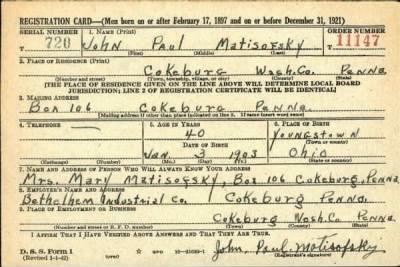 REGISTRATION CARD—(Men born on or after February 17, 1897 and on or before December 31, 1921)
SERIAL NUMBER 1. NAME (Print) ORDER NUMBER
720 John Paul Matisofsky 11147
(First) (Middle) (Last)
2. PLACE OF RESIDENCE (Print)
Cokeburg Wash.Co. Penna
(Number and street) (Town, township, village, or city) (County) (State)
[THE PLACE OF RESIDENCE GIVEN ON THE LINE ABOVE WILL DETERMINE LOCAL BOARD
JURISDICTION; LINE 2 OF REGISTRATION CERTIFICATE WILL BE IDENTICAL]
3. MAILING ADDRESS
Box 106 Cokeburg Penna.
[Mailing address if other than place indicated on line 2. If same insert word same]
4. TELEPHONE 5. AGE IN YEARS 6. PLACE OF BIRTH
40 Youngstown
DATE OF BIRTH (Town or county)
Jan. 3 1903 Ohio
(Exchange) (Number) (Mo.) (Day) (Yr.) (State or country)
7. NAME AND ADDRESS OF PERSON WHO WILL ALWAYS KNOW YOUR ADDRESS
Mrs. Mary Matisofsky, Box 106 Cokeburg, Penna.
8. EMPLOYER'S NAME AND ADDRESS
Bethelhem Industrial Co. Cokeburg Penna.
9. PLACE OF EMPLOYMENT OR BUSINESS
Cokeburg Wash.Co. Penna
(Number and street or R. F. D. number) (Town) (County) (State)
I AFFIRM THAT I HAVE VERIFIED ABOVE ANSWERS AND THAT THEY ARE TRUE.
D. S. S. Form 1
(Revised 1-1-42) (over) John Paul Matisofsky
(Registrant's signature)